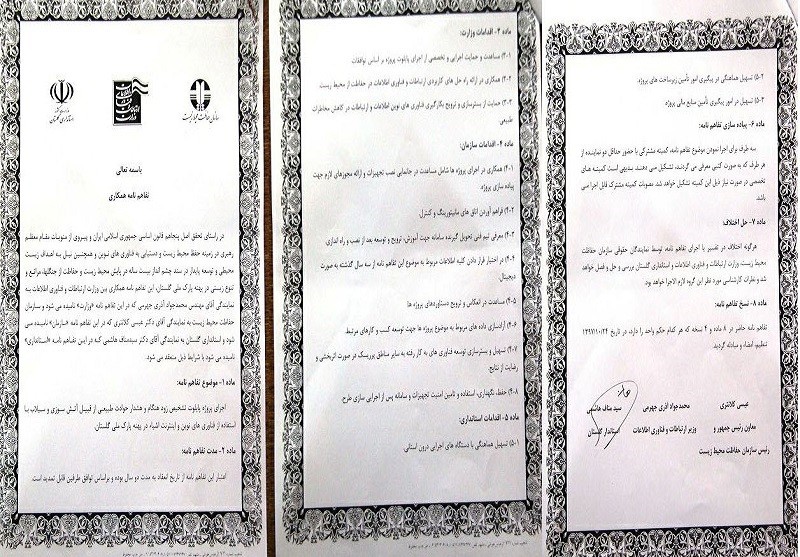 سازمان حفاظت محیط زیست
وزارت کشور
استانداری گلستان
باسمه تعالی
تفاهم نامه همکاری
در راستای تحقق اصل پنجاهم قانون اساسی جمهوری اسلامی ایران و پیروی از منویات مقام معظم
رهبری در زمینه حفظ محیط زیست و دستیابی به فناوری های نوین و همچنین نیل به اهداف زیست
محیطی و توسعه پایدار در سند چشم انداز بیست ساله در پایش محیط زیست و حفاظت از جنگلها، مراتع و
تنوع زیستی در پهنه پارک ملی گلستان، این تفاهم نامه همکاری بین وزارت ارتباطات و فناوری اطلاعات به
نمایندگی آقای مهندس محمدجواد آذری جهرمی که در این تفاهم نامه «وزارت» نامیده می شود و سازمان
حفاظت محیط زیست به نمایندگی آقای دکتر عیسی کلانتری که در این تفاهم نامه «سازمان» نامیده می
شود و استانداری گلستان به نمایندگی آقای دکتر سیدمناف هاشمی که در این تفاهم نامه «استانداری»
نامیده می شود با شرایط ذیل منعقد می شود.
ماده ۱- موضوع تفاهم نامه:
اجرای پروژه پایلوت تشخیص زود هنگام و هشدار حوادث طبیعی از قبیل آتش سوزی و سیلاب با
استفاده از فناوری های نوین و اینترنت اشیاء در پهنه پارک ملی گلستان.
ماده ۲- مدت تفاهم نامه:
اعتبار این تفاهم نامه از تاریخ انعقاد به مدت دو سال بوده و براساس توافق طرفین قابل تمدید است.
ماده ۳- اقدامات وزارت:
۳-۱) مساعدت و حمایت اجرایی و تخصصی از اجرای پایلوت پروژه بر اساس توافقات
۳-۲) همکاری در ارائه راه حل های کاربردی ارتباطات و فناوری اطلاعات در حفاظت از محیط زیست
۳-۳) حمایت از بسترسازی و ترویج بکارگیری فناوری های نوین اطلاعات و ارتباطات در کاهش مخاطرات
طبیعی
ماده ۴- اقدامات سازمان:
۴-۱) همکاری در اجرای پروژه ها شامل مساعدت در جانمایی نصب تجهیزات و ارائه مجوزهای لازم جهت
پیاده سازی پروژه.
۴-۲) فراهم آوردن اتاق های مانیتورینگ و کنترل.
۴-۳) معرفی تیم فنی تحویل گیرنده سامانه جهت آموزش، ترویج و توسعه بعد از نصب و راه اندازی
۴-۴) در اختیار قرار دادن کلیه اطلاعات مربوط به موضوع این تفاهم نامه از سه سال گذشته به صورت
دیجیتال.
۴-۵) مساعدت در انعکاس و ترویج دستاوردهای پروژه ها
۴-۶) آزادسازی داده های مربوط به موضوع پروژه ها جهت توسعه کسب و کارهای مرتبط.
۴-۷) تسهیل و بسترسازی توسعه فناوری های به کار رفته به سایر مناطق پرریسک در صورت اثربخشی و
رضایت از نتایج.
۴-۸) حفظ، نگهداری، استفاده و تامین امنیت تجهیزات و سامانه پس از اجرایی سازی طرح.
ماده ۵- اقدامات استانداری:
۵-۱) تسهیل هماهنگی با دستگاه های اجرایی درون استانی.
۵-۲) تسهیل هماهنگی در پیگیری امور تأمین زیرساخت های پروژه.
۵-۳) تسهیل در امور پیگیری تأمین منابع مالی پروژه
ماده ۶- پیاده سازی تفاهم نامه:
سه طرف برای اجرا نمودن موضوع تفاهم نامه، کمیته مشترکی با حضور حداقل دو نماینده از
هر طرف که به صورت کتبی معرفی می گردند، تشکیل می دهند. بدیهی است کمیته های
تخصصی در صورت نیاز ذیل این کمیته تشکیل خواهد شد. مصوبات کمیته مشترک قابل اجرا می
باشد.
ماده ۷- حل اختلاف:
هرگونه اختلاف در تفسیر یا اجرای تفاهم نامه، توسط نمایندگان حقوقی سازمان حفاظت
محیط زیست، وزارت ارتباطات و فناوری اطلاعات و استانداری گلستان بررسی و حل و فصل خواهد
شد و نظرات کارشناسی مورد نظر این گروه لازم الاجرا خواهد بود.
ماده ۸- نسخ تفاهم نامه:
تفاهم نامه حاضر در ۸ ماده و ۴ نسخه که هر کدام حکم واحد را دارد، در تاریخ ۱۳۹۷/۱۰/۲۴
تنظیم، امضاء و مبادله گردید.
عیسی کلانتری
معاون رئیس جمهور و
رئیس سازمان حفاظت محیط زیست
محمدجواد آذری جهرمی
وزیر ارتباطات و فناوری اطلاعات
سید مناف هاشمی
استاندار گلستان